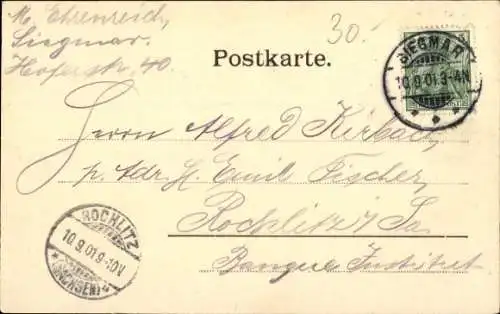 M. Ehrenreich,
Siegmar.
Hoferstr. 40.
30.-
Postkarte.
SIEGMAR
10.9.01.3-4N
Herrn Alfred Kirbach,
p. Adr. H. Emil Fischer,
Rochlitz i/Sa.
ROCHLITZ
10.9.01.9-10V
(SACHSEN)